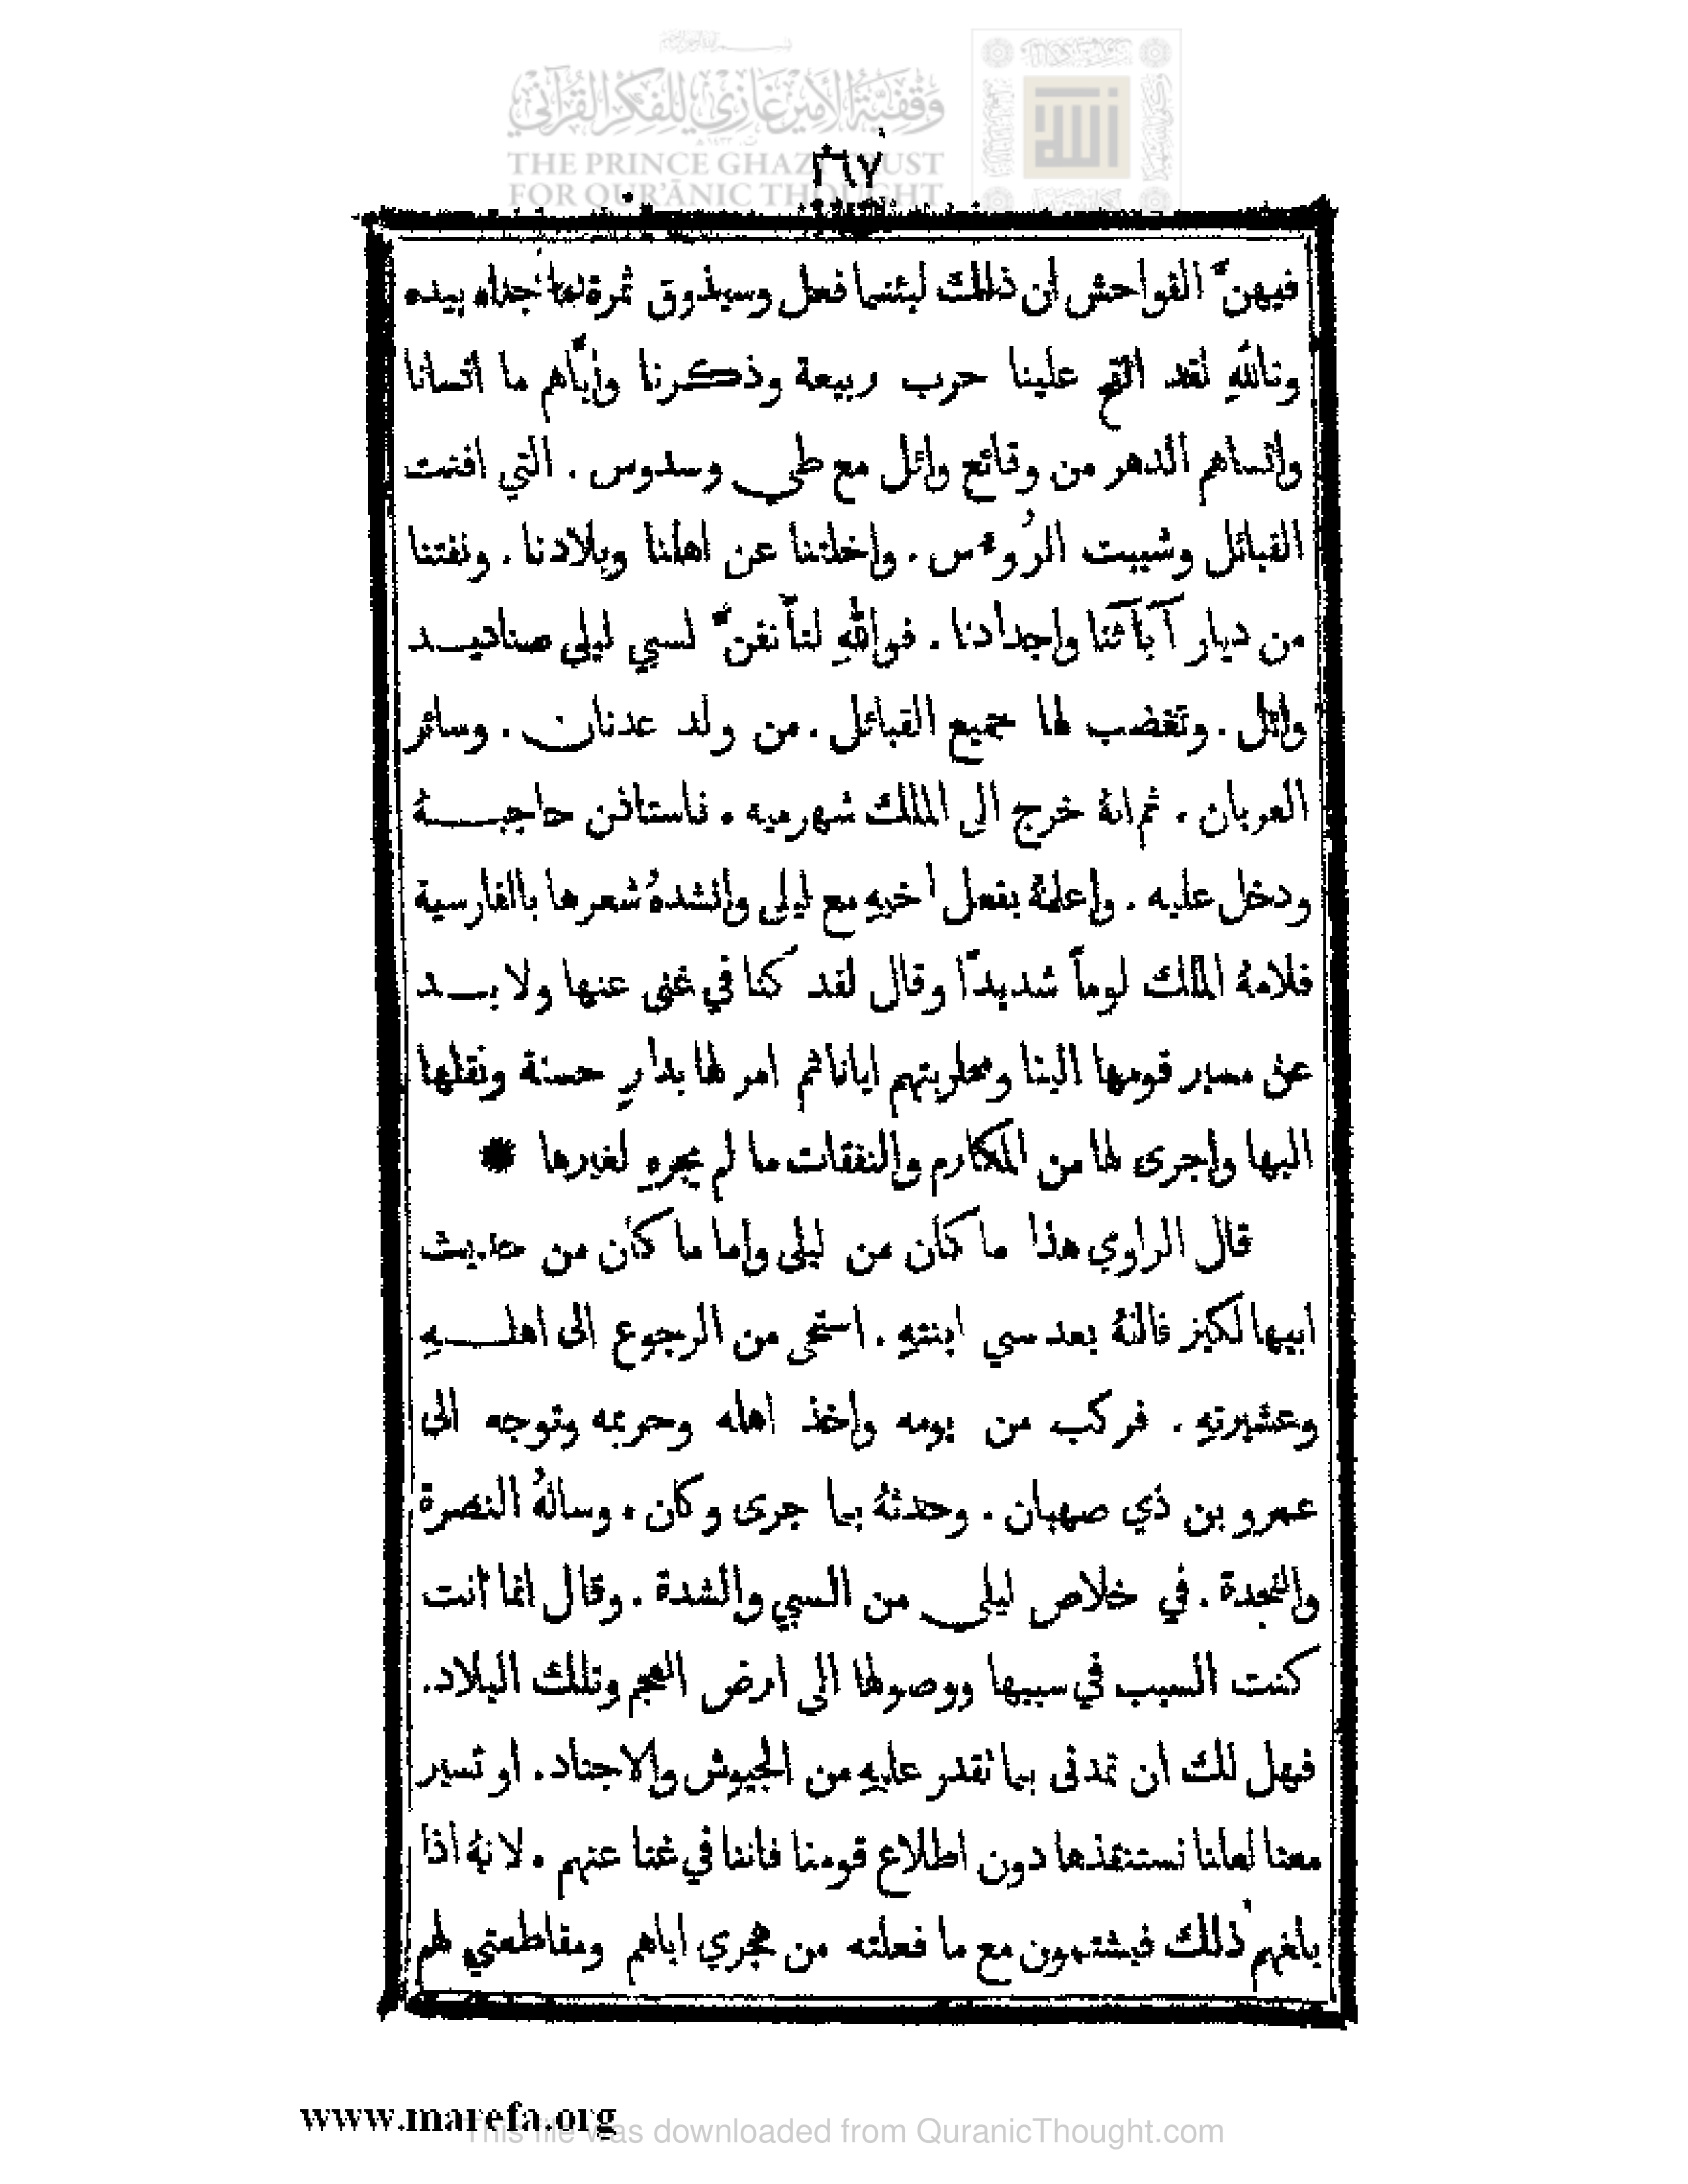 وقفية الأمير غازي للفكر القرآني
THE PRINCE GHAZI TRUST
FOR QUR'ĀNIC THOUGHT
٢٦٧
فيهنّ الفواحش ان ذلك لبئسما فعل وسيذوق ثمرة ما جناه بيده
وتاللهِ لقد القح علينا حرب ربيعة وذكرنا وأيّاهم ما انسانا
وانساهم الدهر من وقائع وائل مع طي وسدوس . التي افنت
القبائل وشيبت الرُوءس . واخلتنا عن اهلنا وبلادنا . ونفتنا
من ديار آبآئنا واجدادنا . فواللهِ لتأنفنّ لسبي ليلى صناديد
وائل . وتغضب لها جميع القبائل . من ولد عدنان . وسائر
العربان . ثم انهُ خرج الى الملك شهرميه . فاستاذن حاجبهُ
ودخل عليه . واعلمهُ بفعل اخيهِ مع ليلى وانشدهُ شعرها بالفارسية
فلامهُ الملك لوماً شديدًا وقال لقد كنا في غنى عنها ولا بد
عن مسير قومها الينا ومحاربتهم ايانا ثم امر لها بدارٍ حسنة ونقلها
اليها واجرى لها من المكارم والنفقات ما لم يجرهِ لغيرها *
قال الراوي هذا ما كان من ليلى واما ما كان من حديث
ابيها لكيز فانهُ بعد سبي ابنتهِ . استحى من الرجوع الى اهلهِ
وعشيرتهِ . فركب من يومه واخذ اهله وحريمه وتوجه الى
عمرو بن ذي صهبان . وحدثهُ بما جرى وكان . وسالهُ النصرة
والنجدة . في خلاص ليلى من السبي والشدة . وقال انما انت
كنت السبب في سبيها ووصولها الى ارض العجم وتلك البلاد.
فهل لك ان تمدني بما تقدر عليهِ من الجيوش والاجناد . او تسير
معنا لعلنا نستنقذها دون اطلاع قومنا فاننا في غنا عنهم . لانهُ اذا
بلغهم ذلك فيشتمون مع ما فعلته من هجري اياهم ومقاطعتي لهم
www.marefa.org
This file was downloaded from QuranicThought.com